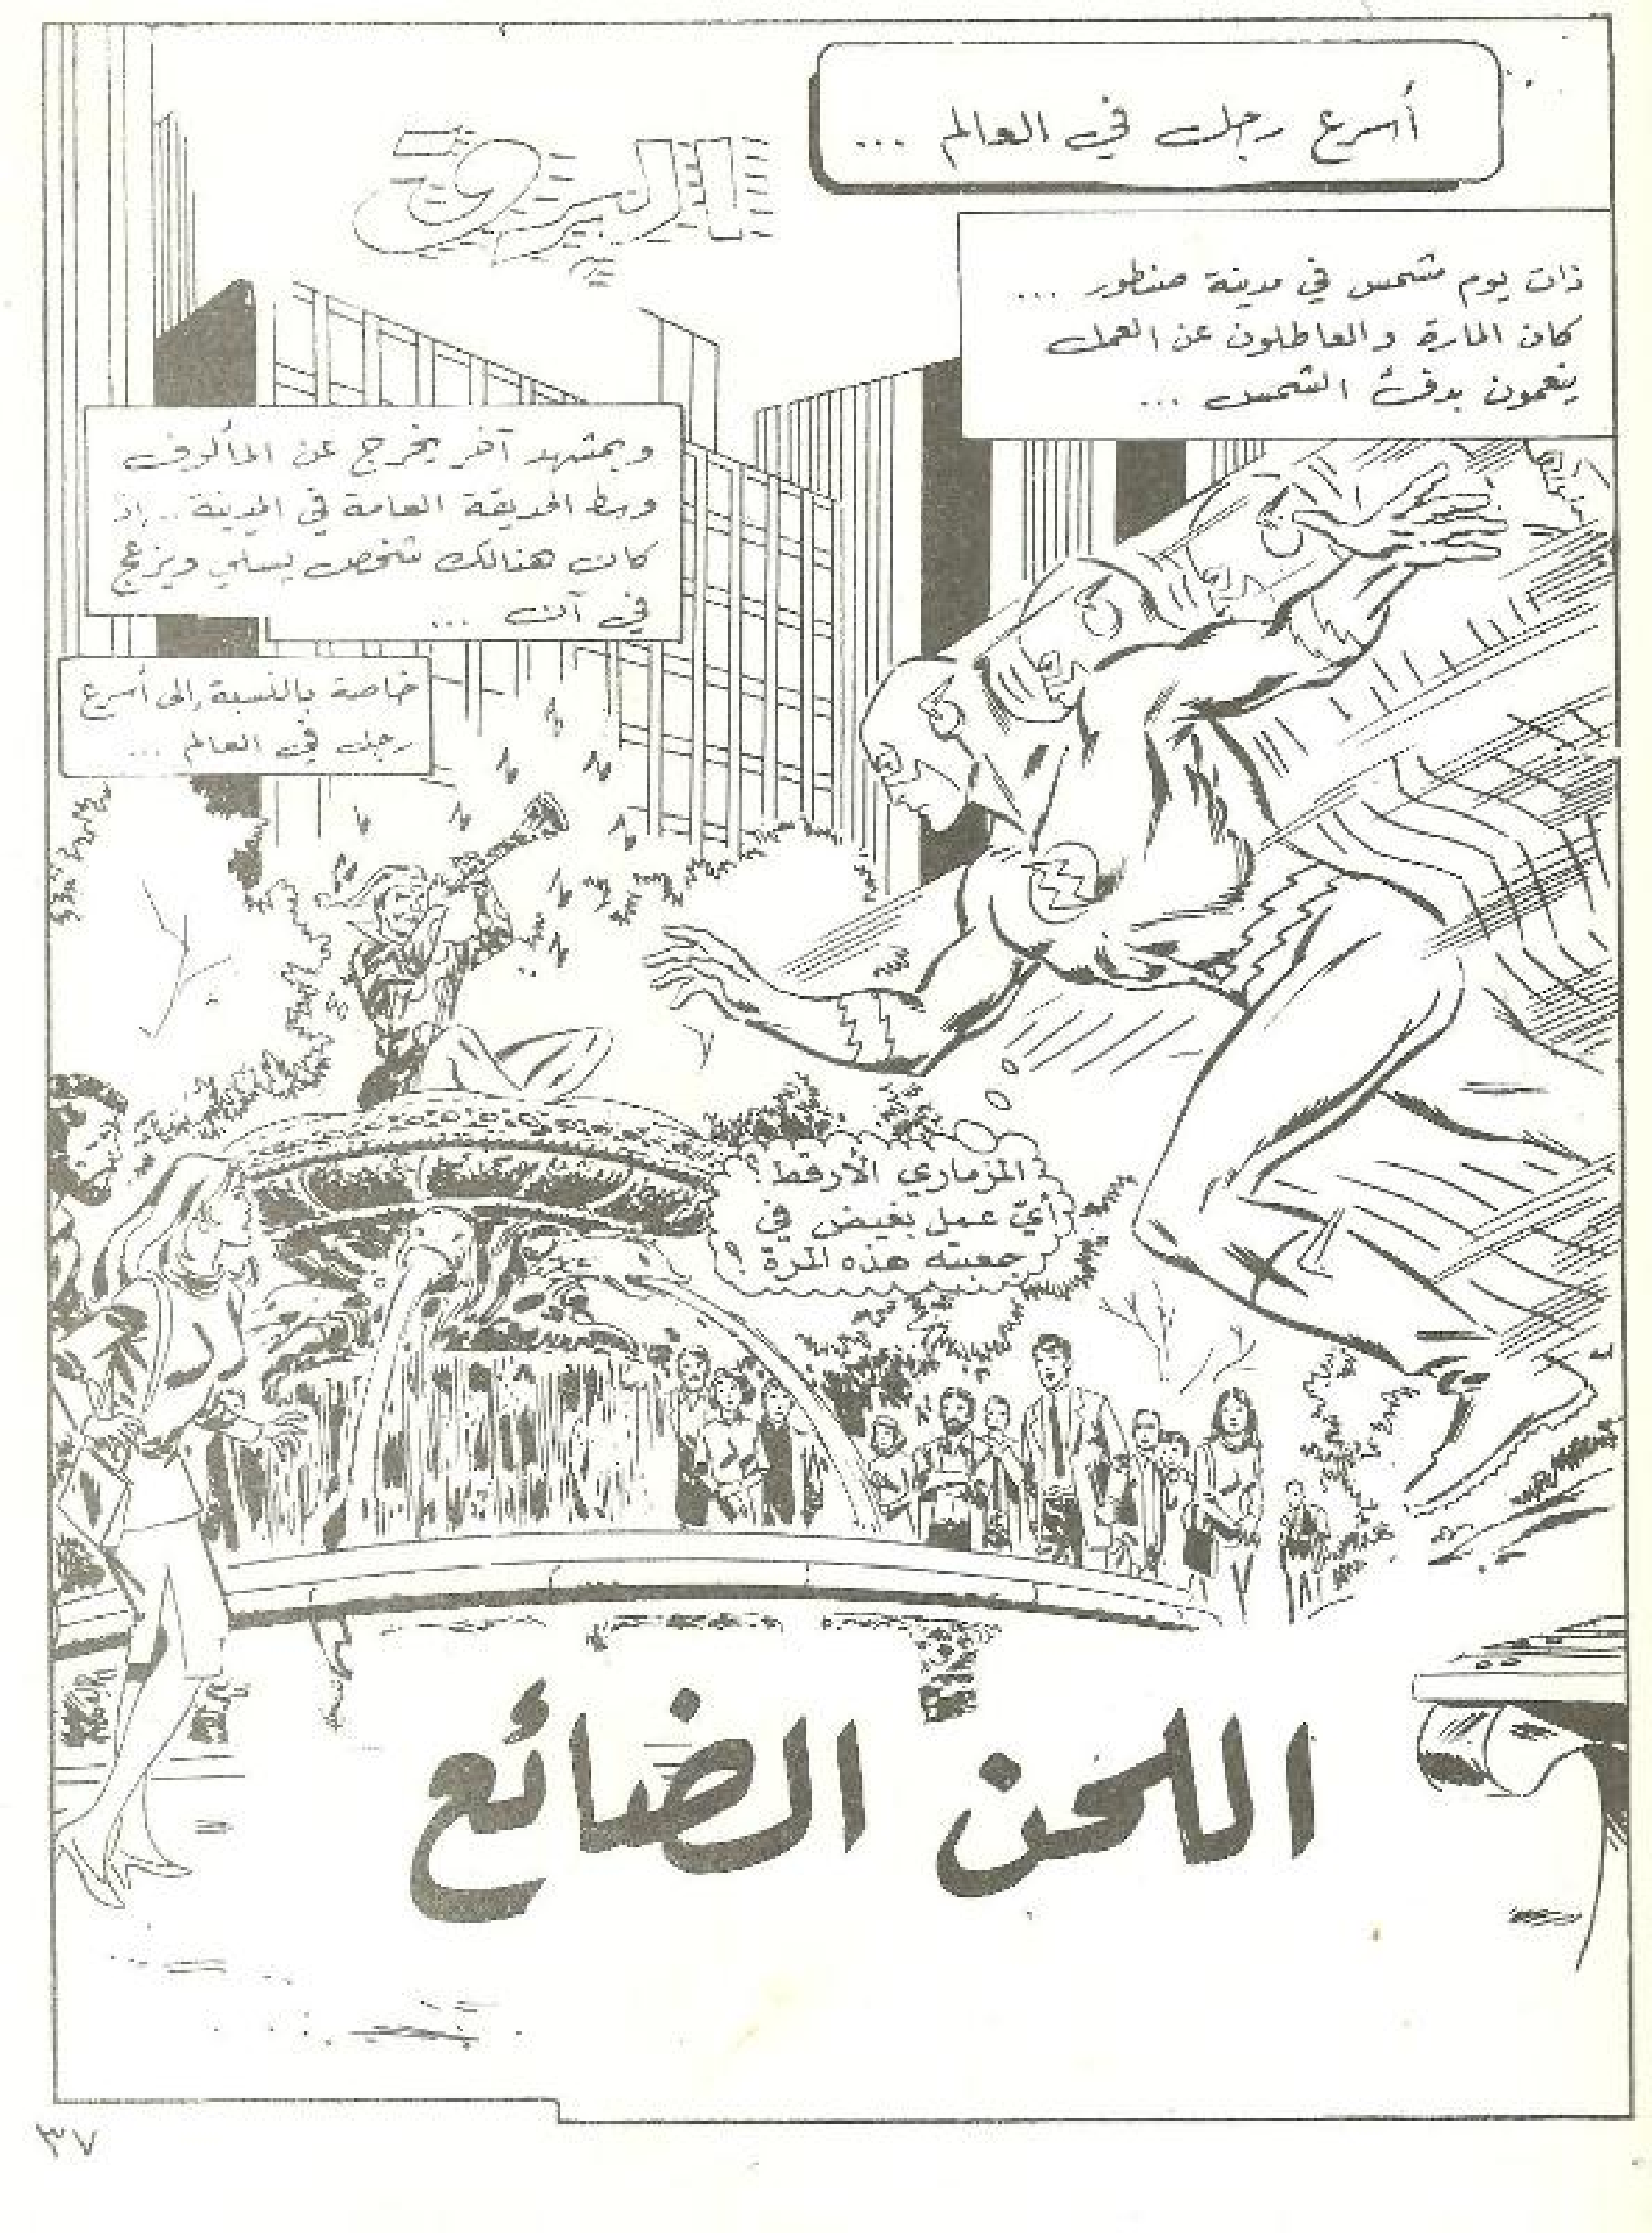 أسرع رجل في العالم ...
البرق
ذات يوم مشمس في مدينة منظور ...
كان المارة والعاطلون عن العمل
ينعمون بدفء الشمس ...
وبمشهد آخر يخرج عن المألوف
وسط الحديقة العامة في المدينة .. إذ
كان هنالك شخص يسلي ويزعج
في آن ...
خاصة بالنسبة إلى أسرع
رجل في العالم ...
المزماري الأرقط !
أيّ عمل بغيض في
جعبته هذه المرة ؟
اللحن الضائع
٣٧